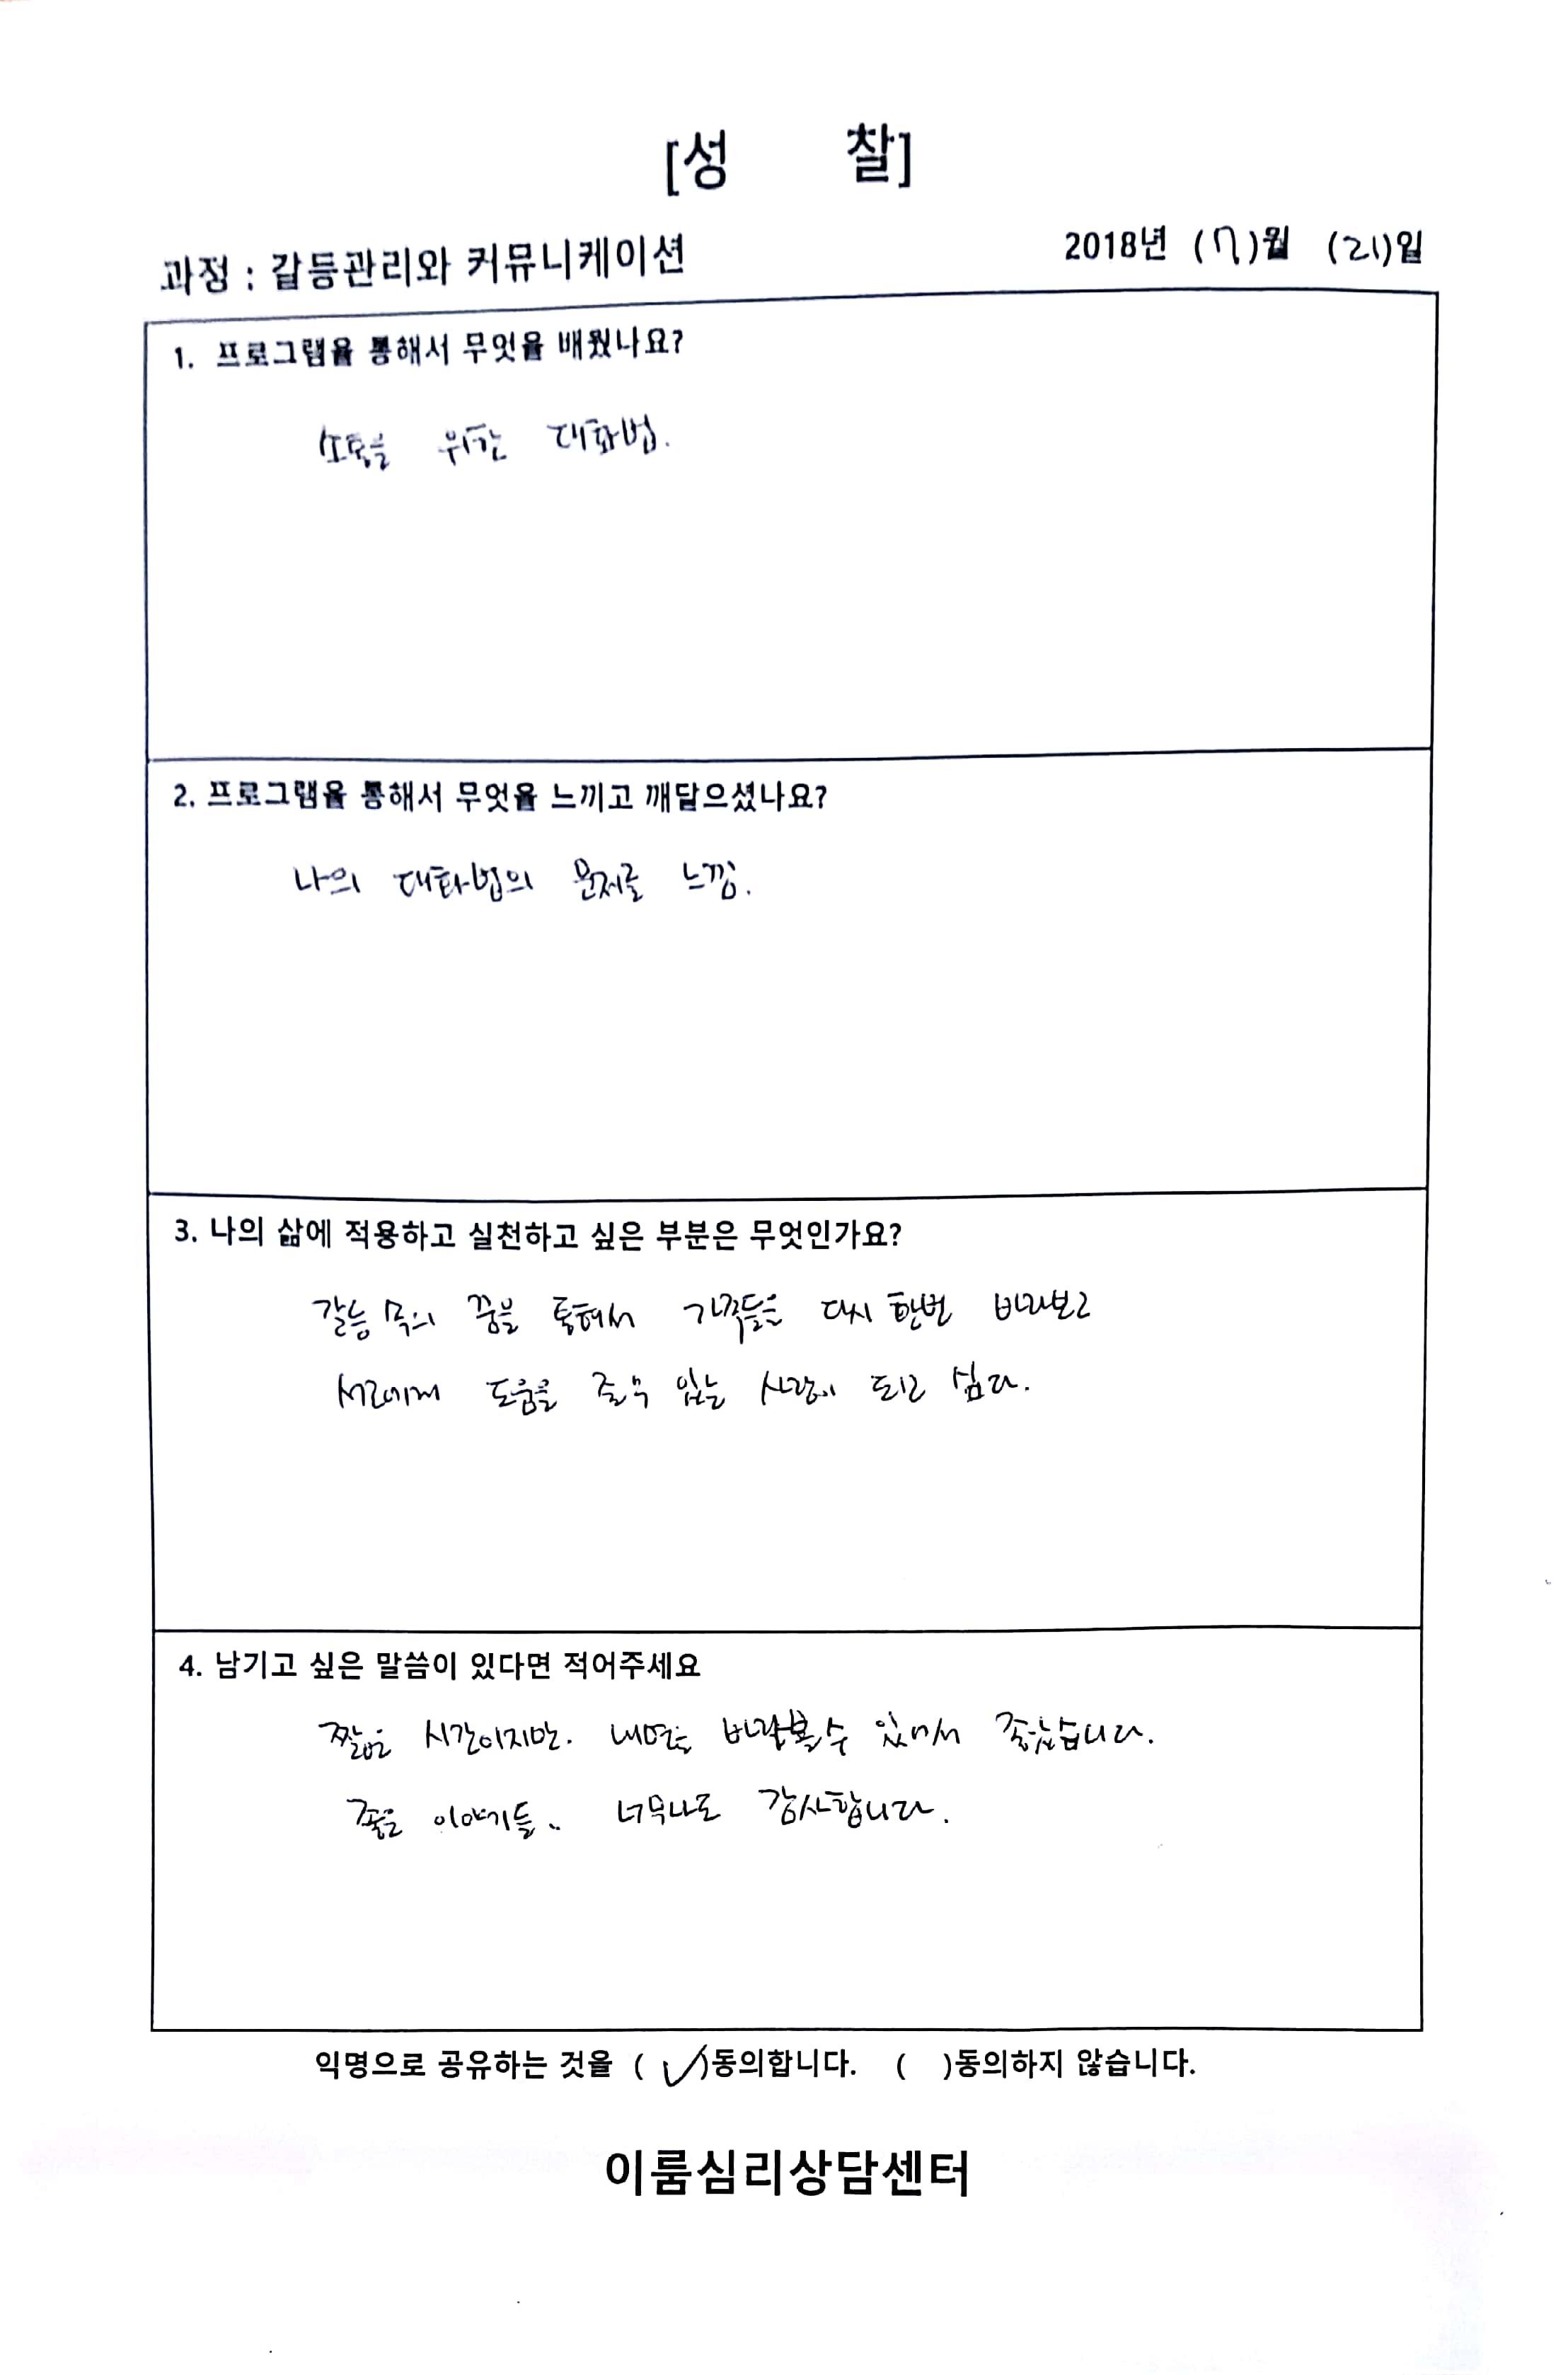 [성 찰]
과정 : 갈등관리와 커뮤니케이션 2018년 (7)월 (21)일
1. 프로그램을 통해서 무엇을 배웠나요?
소통을 위한 대화법.
2. 프로그램을 통해서 무엇을 느끼고 깨달으셨나요?
나의 대화법의 문제를 느낌.
3. 나의 삶에 적용하고 실천하고 싶은 부분은 무엇인가요?
갈등 속의 꿈을 통해서 가족들을 다시 한번 바라보고
서로에게 도움을 줄수 있는 사람이 되고 싶다.
4. 남기고 싶은 말씀이 있다면 적어주세요
짧은 시간이지만. 내면을 바라볼수 있어서 좋았습니다.
좋은 이야기들.. 너무나도 감사합니다.
익명으로 공유하는 것을 ( ✓ )동의합니다. ( )동의하지 않습니다.
이룸심리상담센터